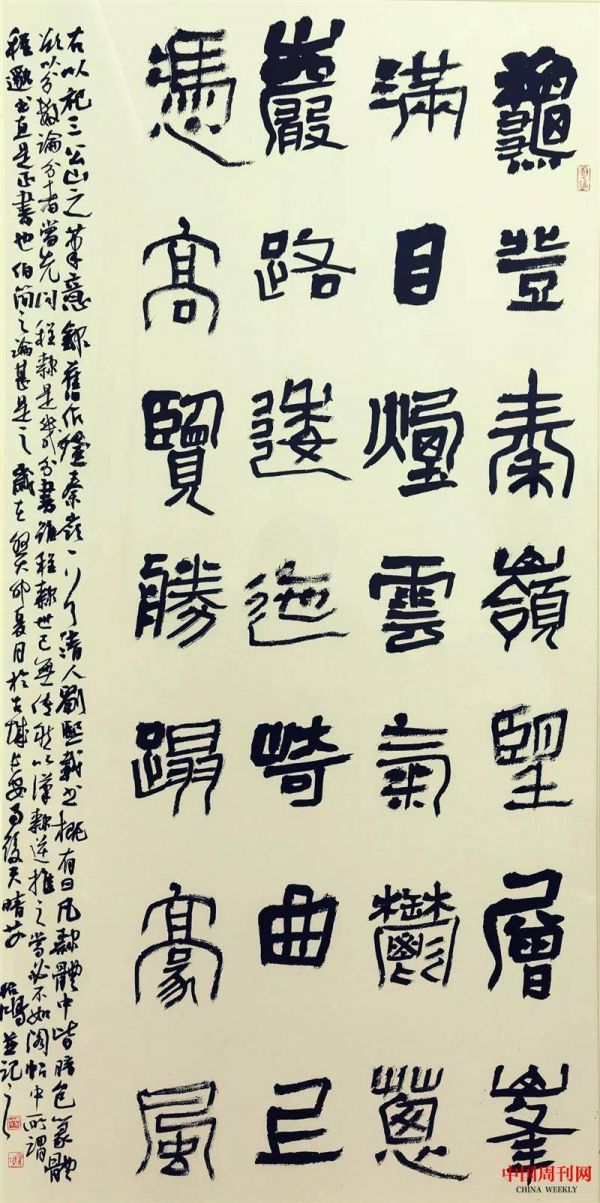 龝登秦嶺望層峯
滿目煙雲氣鬱蔥
巖路逶迤崎曲
憑高覽勝蹋豪風
右以祀三公山之筆意錄舊作登秦嶺一清人劉熙載書概有曰凡隸體中皆暗包篆體
欲以分數論分書者當先問程隸是幾分書雖程隸世已無傳然以漢隸逆推之當必不如閣帖中所謂
程邈書直是正書也伯簡之論甚是之歲在癸卯夏月於古城長安雨後天晴時
並記之
中国周刊网
CHINA WEEKLY